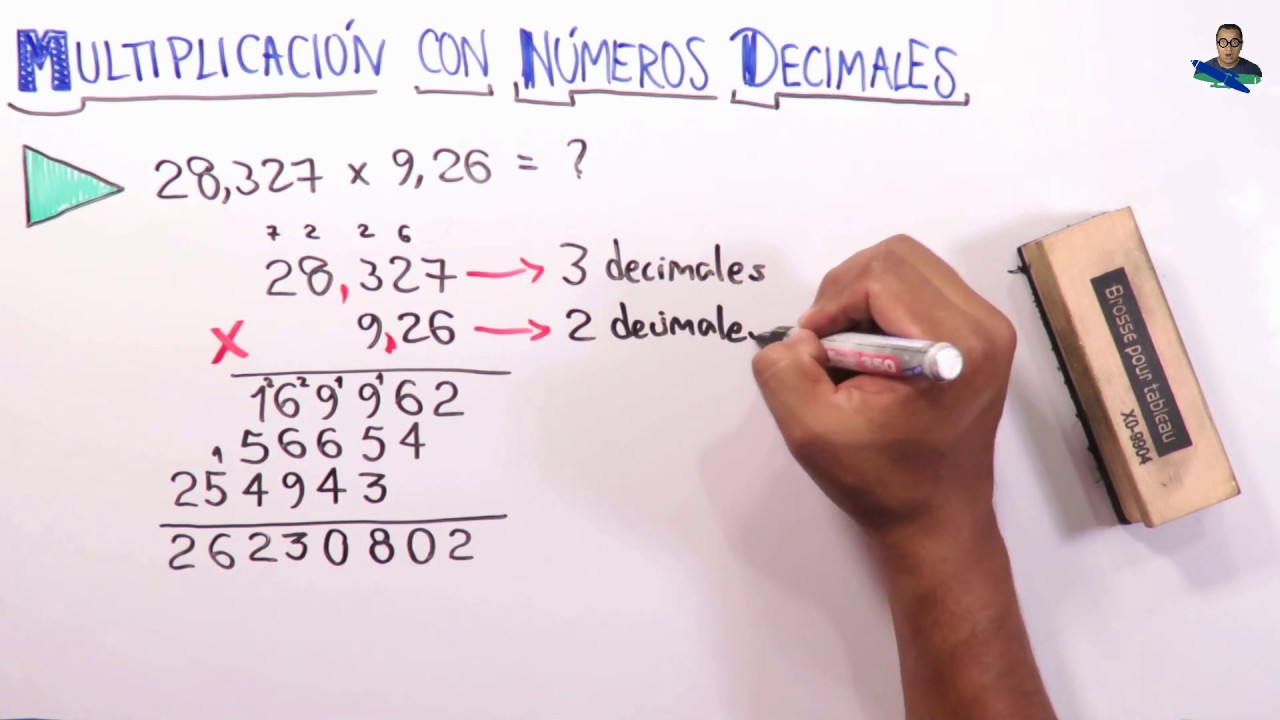 MULTIPLICACIÓN CON NÚMEROS DECIMALES
28,327 x 9,26 = ?
7 2 2 6
28,327 → 3 decimales
x 9,26 → 2 decimale
2 2 1 1
169962
1
56654
254943
26230802
Brosse pour tableau
X0-9904
350